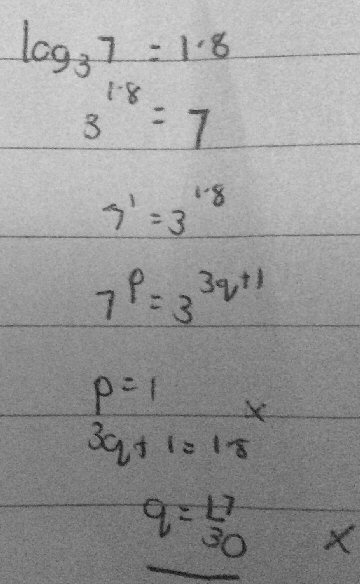 log₃7 = 1.8
3^1.8 = 7
7^1 = 3^1.8
7^p = 3^3q+1
p = 1 x
3q + 1 = 1.8
q = 17/30 x